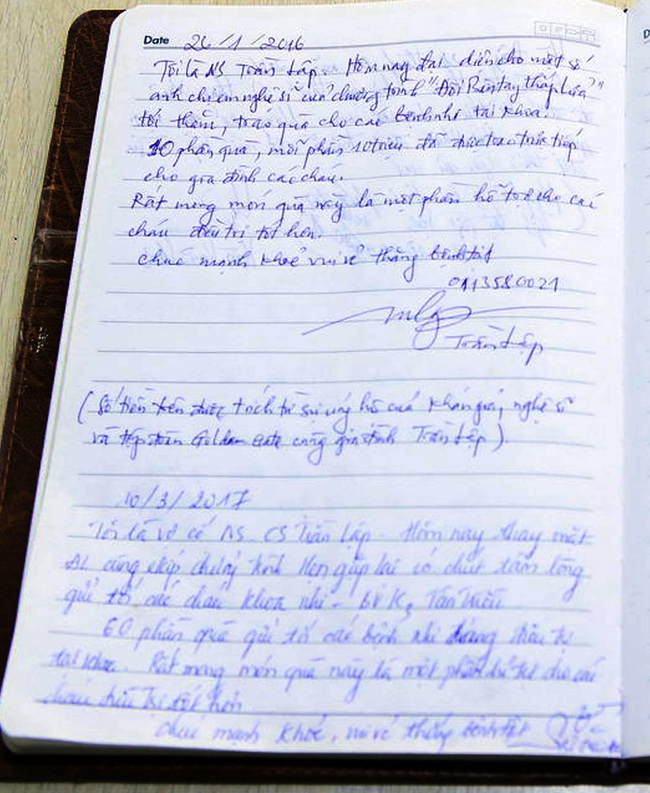 Date 26/1/2016
Tôi là NS Trần Lập. Hôm nay đại diện cho một số
anh chị em nghệ sĩ của chương trình "Đôi Bàn tay thắp lửa"
tới thăm, trao quà cho các bệnh nhi tại khoa.
10 phần quà, mỗi phần 10 triệu đã được trao trực tiếp
cho gia đình các cháu.
Rất mong món quà này là một phần hỗ trợ cho các
cháu điều trị tốt hơn.
chúc mạnh khoẻ vui vẻ thắng bệnh tật
Trần Lập
(Số tiền trên được trích từ sự ủng hộ của khán giả, nghệ sĩ
và tập đoàn Golden Gate cùng gia đình Trần Lập).
10/3/2017
Tôi là vợ cố NS. CS Trần Lập. Hôm nay thay mặt
cùng ekip chương trình Hẹn gặp lại có chút tấm lòng
gửi tới các cháu khoa nhi - BV K3 Tân Triều
60 phần quà gửi tới các bệnh nhi đang điều trị
tại khoa. Rất mong món quà này là một phần hỗ trợ cho các
cháu điều trị tốt hơn
chúc mạnh khoẻ, vui vẻ thắng bệnh tật